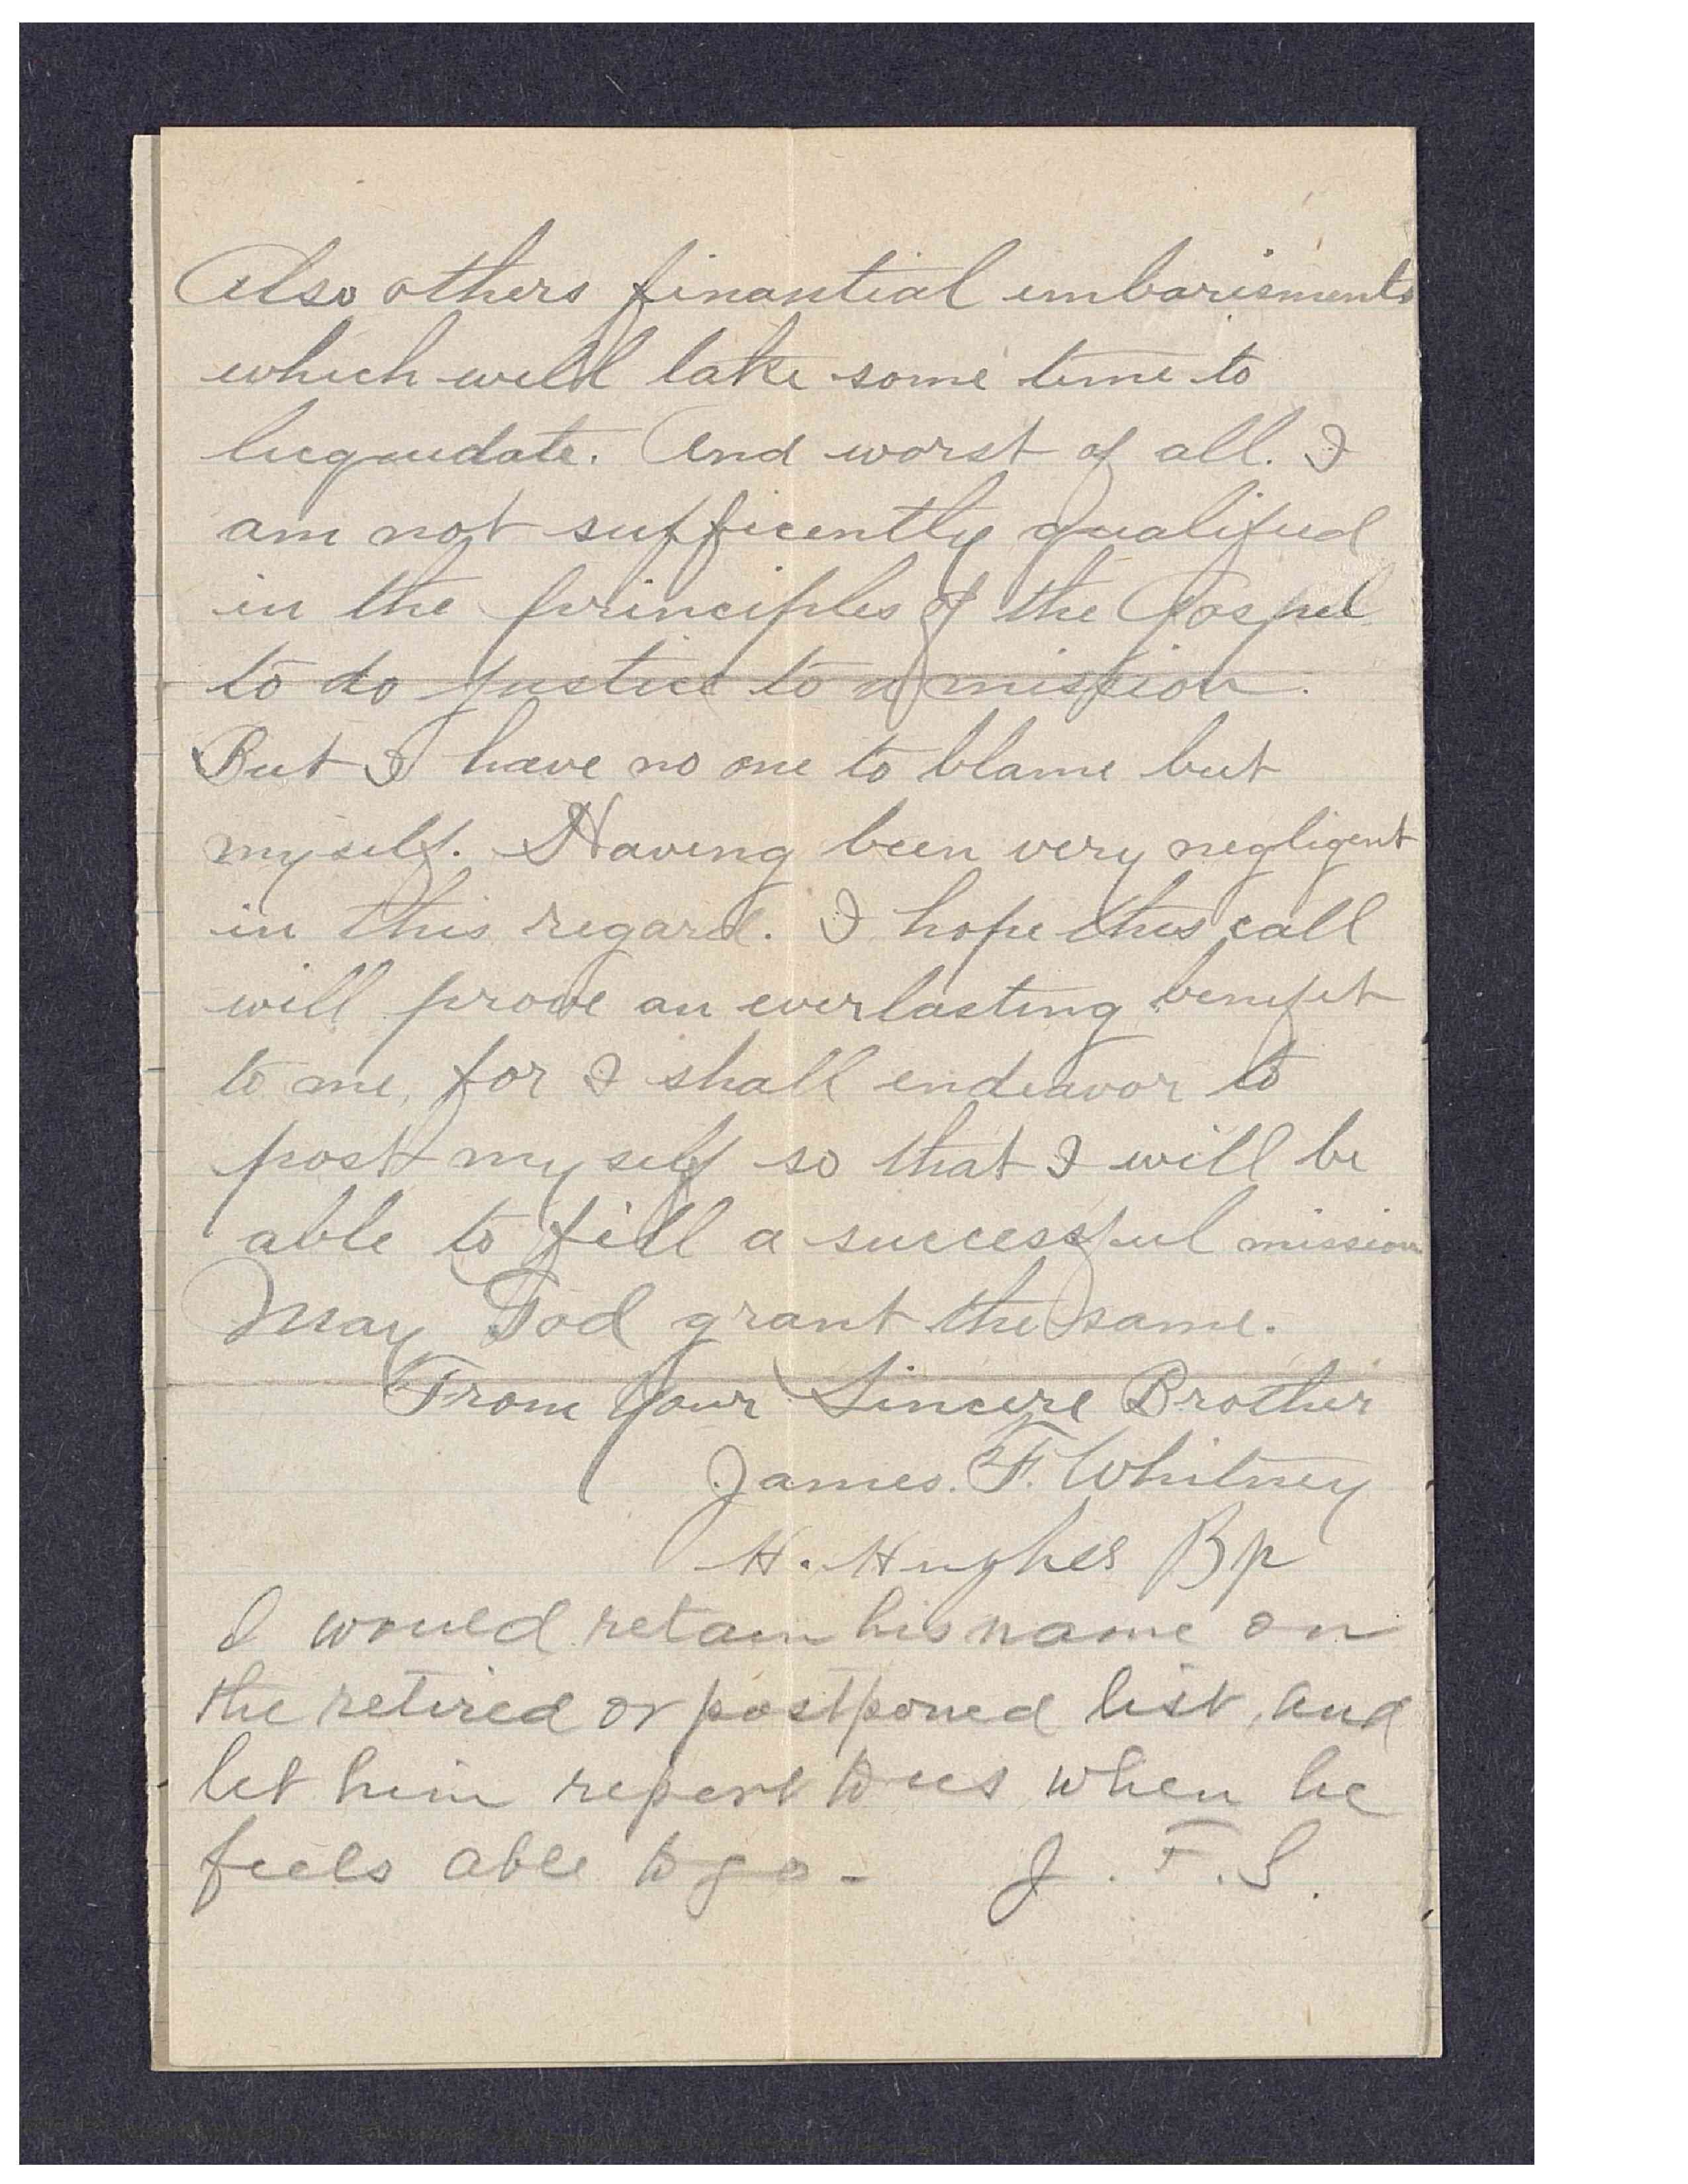 Also others finantial imbarisments
which will take some time to
liequidate. And worst of all. I
am not sufficently qualified
in the principles of the Gospel
to do justice to a mission.
But I have no one to blame but
my self. Having been very negligent
in this regard. I hope this call
will prove an everlasting benifit
to me, for I shall endeavor to
post my self so that I will be
able to fill a successful mission
May God grant the same.
From Your Sincere Brother
James. F. Whitney
H. Hughes Bp
I would retain his name on
the retired or postponed list, and
let him report to us when he
feels able to go - J. F. S.